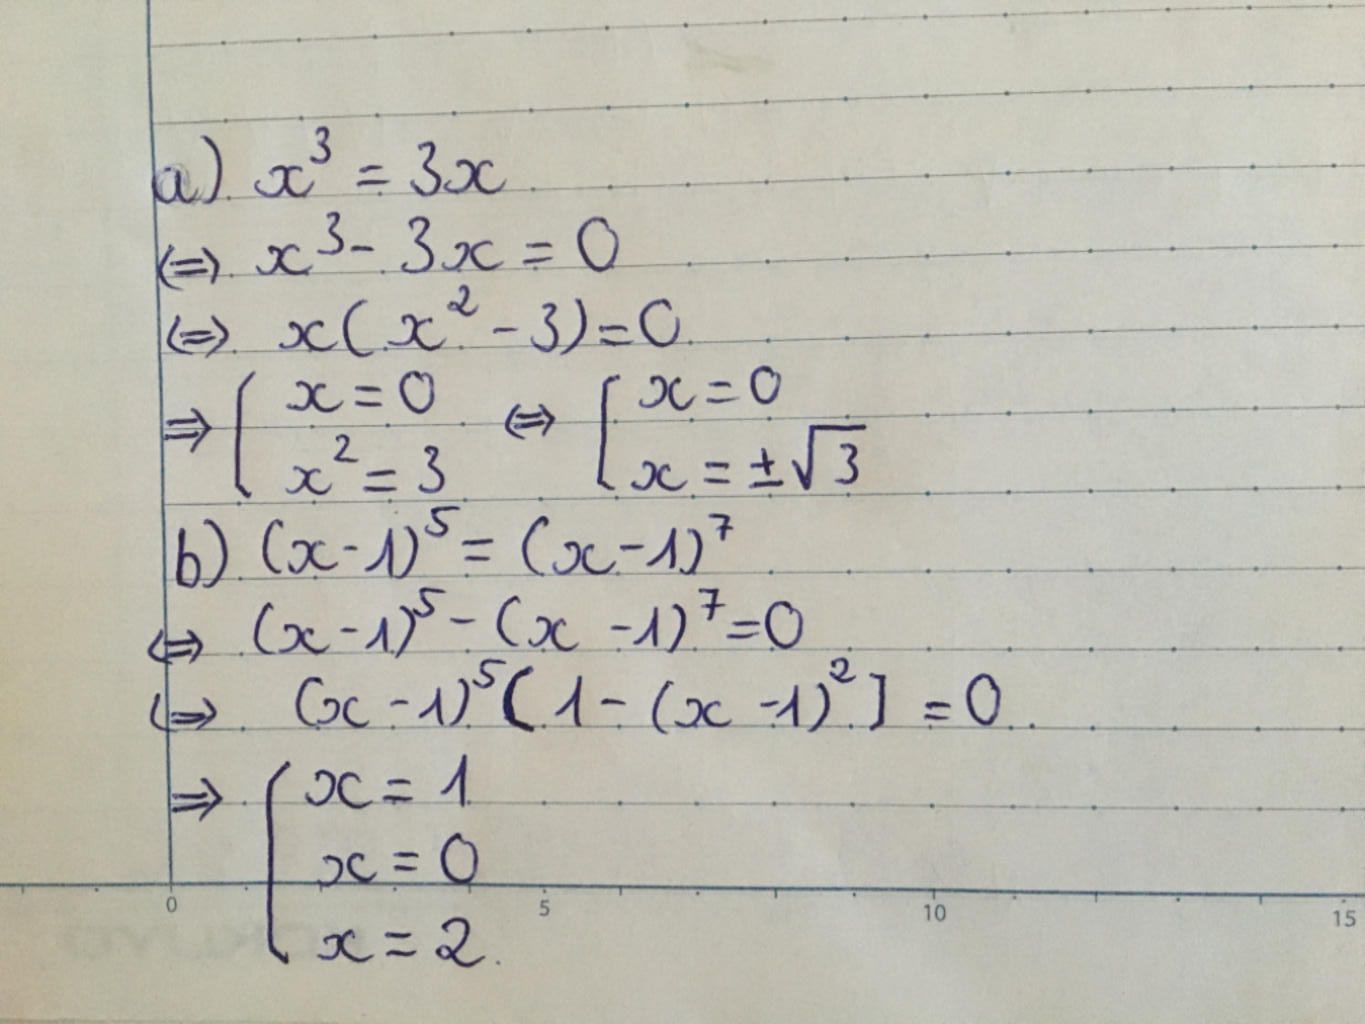 a) x³ = 3x
⇔ x³ - 3x = 0
⇔ x(x² - 3) = 0
⇒ [ x = 0 ⇔ [ x = 0
x² = 3 x = ±√3
b) (x - 1)⁵ = (x - 1)⁷
⇔ (x - 1)⁵ - (x - 1)⁷ = 0
⇔ (x - 1)⁵ [ 1 - (x - 1)² ] = 0
⇒ [ x = 1
x = 0
0 5 10 15
x = 2.